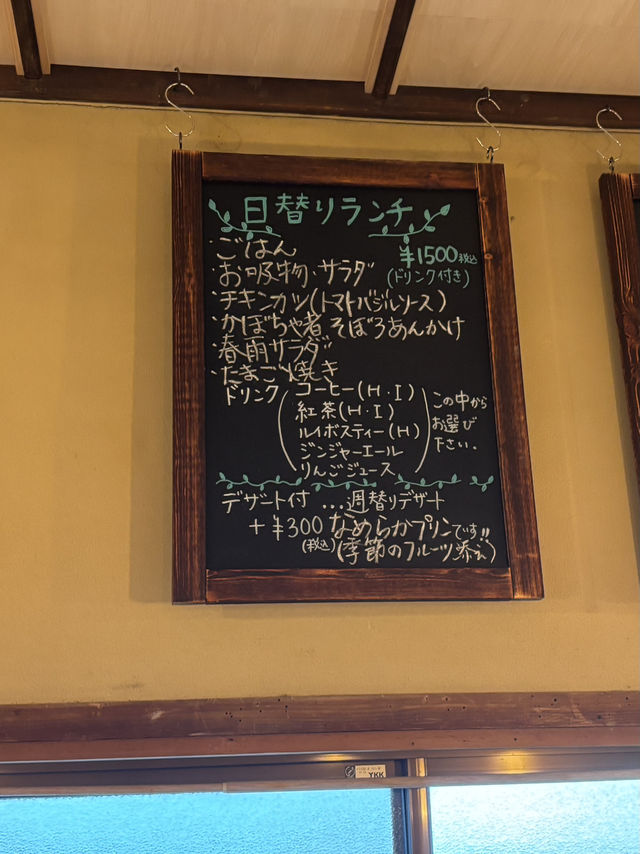 日替りランチ
・ごはん
¥1500税込
・お吸物・サラダ
(ドリンク付き)
・チキンカツ(トマトバジルソース)
・かぼちゃ煮 そぼろあんかけ
・春雨サラダ
・たまご焼き
ドリンク
コーヒー(H・I)
紅茶(H・I)
ルイボスティー(H)
ジンジャーエール
りんごジュース
この中から
お選び
下さい。
デザート付 ...週替りデザート
+¥300 なめらかプリンです!!
(税込)(季節のフルーツ添え)
YKK